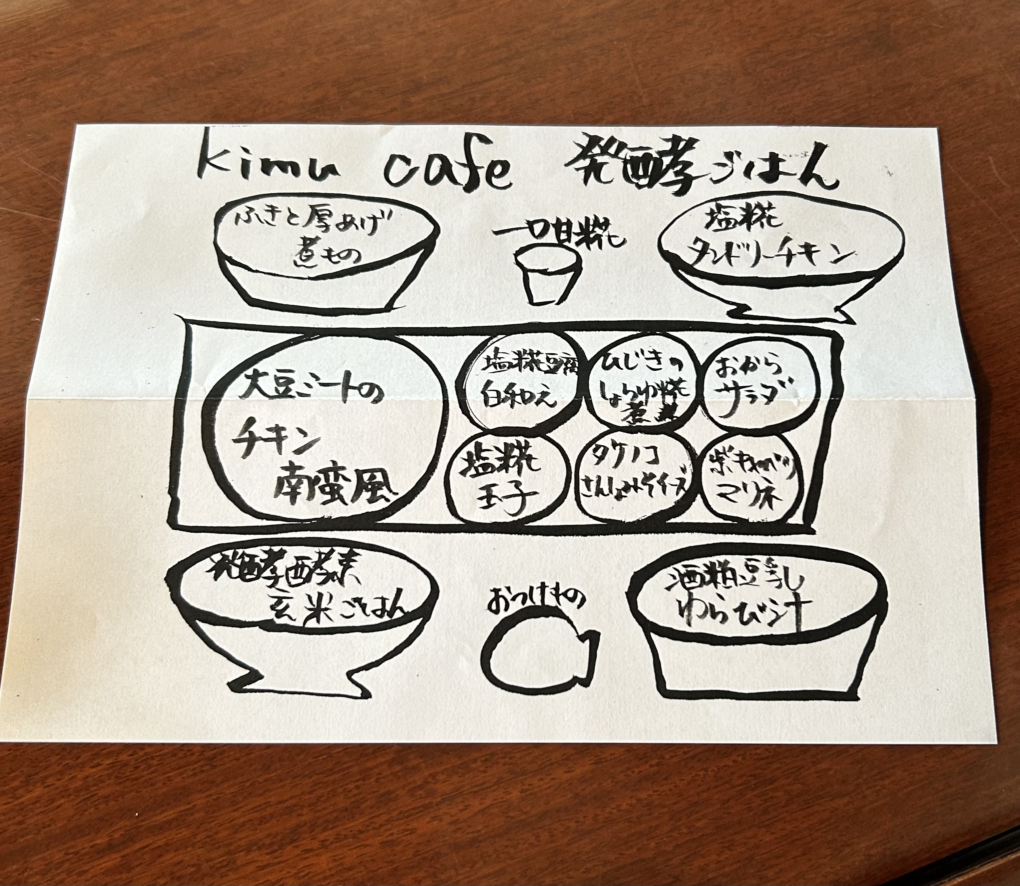 kimu cafe 発酵ごはん
ふきと厚あげ
煮もの
一口甘糀
塩糀
タンドリーチキン
大豆ミートの
チキン
南蛮風
塩糀豆腐
白和え
ひじきの
しょうゆ糀
煮
おから
サラダ
塩糀
玉子
タケノコ
さんしょみそチーズ
紫キャベツ
マリネ
発酵酵素
玄米ごはん
おつけもの
酒粕豆乳
わらび汁